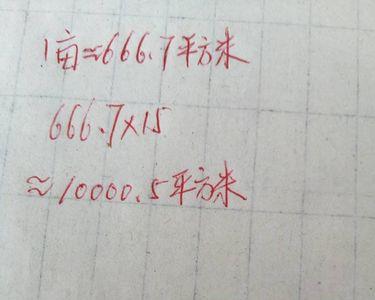 1亩≈666.7平方米
666.7×15
≈10000.5平方米